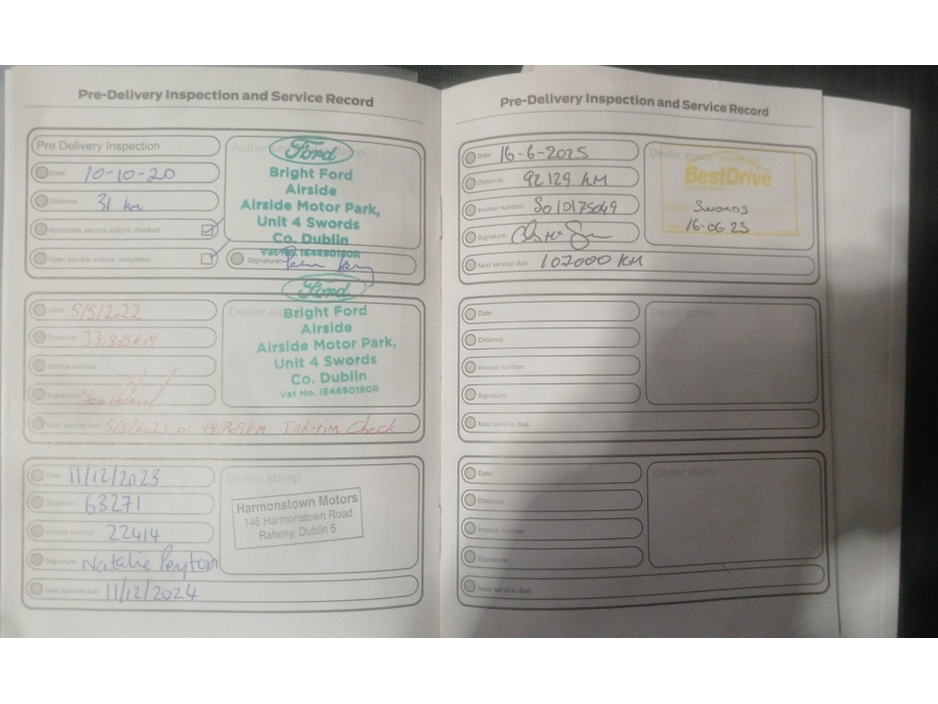 Pre-Delivery Inspection and Service Record
Pre Delivery Inspection
Date: 10-10-20
Distance: 31 km
Applicable service actions checked:
Open service actions completed:
Ford
Bright Ford
Airside
Airside Motor Park,
Unit 4 Swords
Co. Dublin
Vat No. IE4690180R
Signature:
Date: 5/5/2022
Distance: 33,805km
Invoice number:
Signature:
Next service due: 5/5/2023 or 48,805km Interim Check
Dealer stamp
Ford
Bright Ford
Airside
Airside Motor Park,
Unit 4 Swords
Co. Dublin
Vat No. IE4690180R
Date: 11/12/2023
Distance: 63271
Invoice number: 22414
Signature: Natalie Peyton
Next service due: 11/12/2024
Dealer stamp
Harmonstown Motors
146 Harmonstown Road
Raheny, Dublin 5
Pre-Delivery Inspection and Service Record
Date: 16-6-2025
Distance: 92129 KM
Invoice number: SO10175049
Signature:
Next service due: 107000 KM
Dealer stamp
BestDrive
Swords
16-06-25
Date:
Distance:
Invoice number:
Signature:
Next service due:
Dealer stamp
Date:
Distance:
Invoice number:
Signature:
Next service due:
Dealer stamp